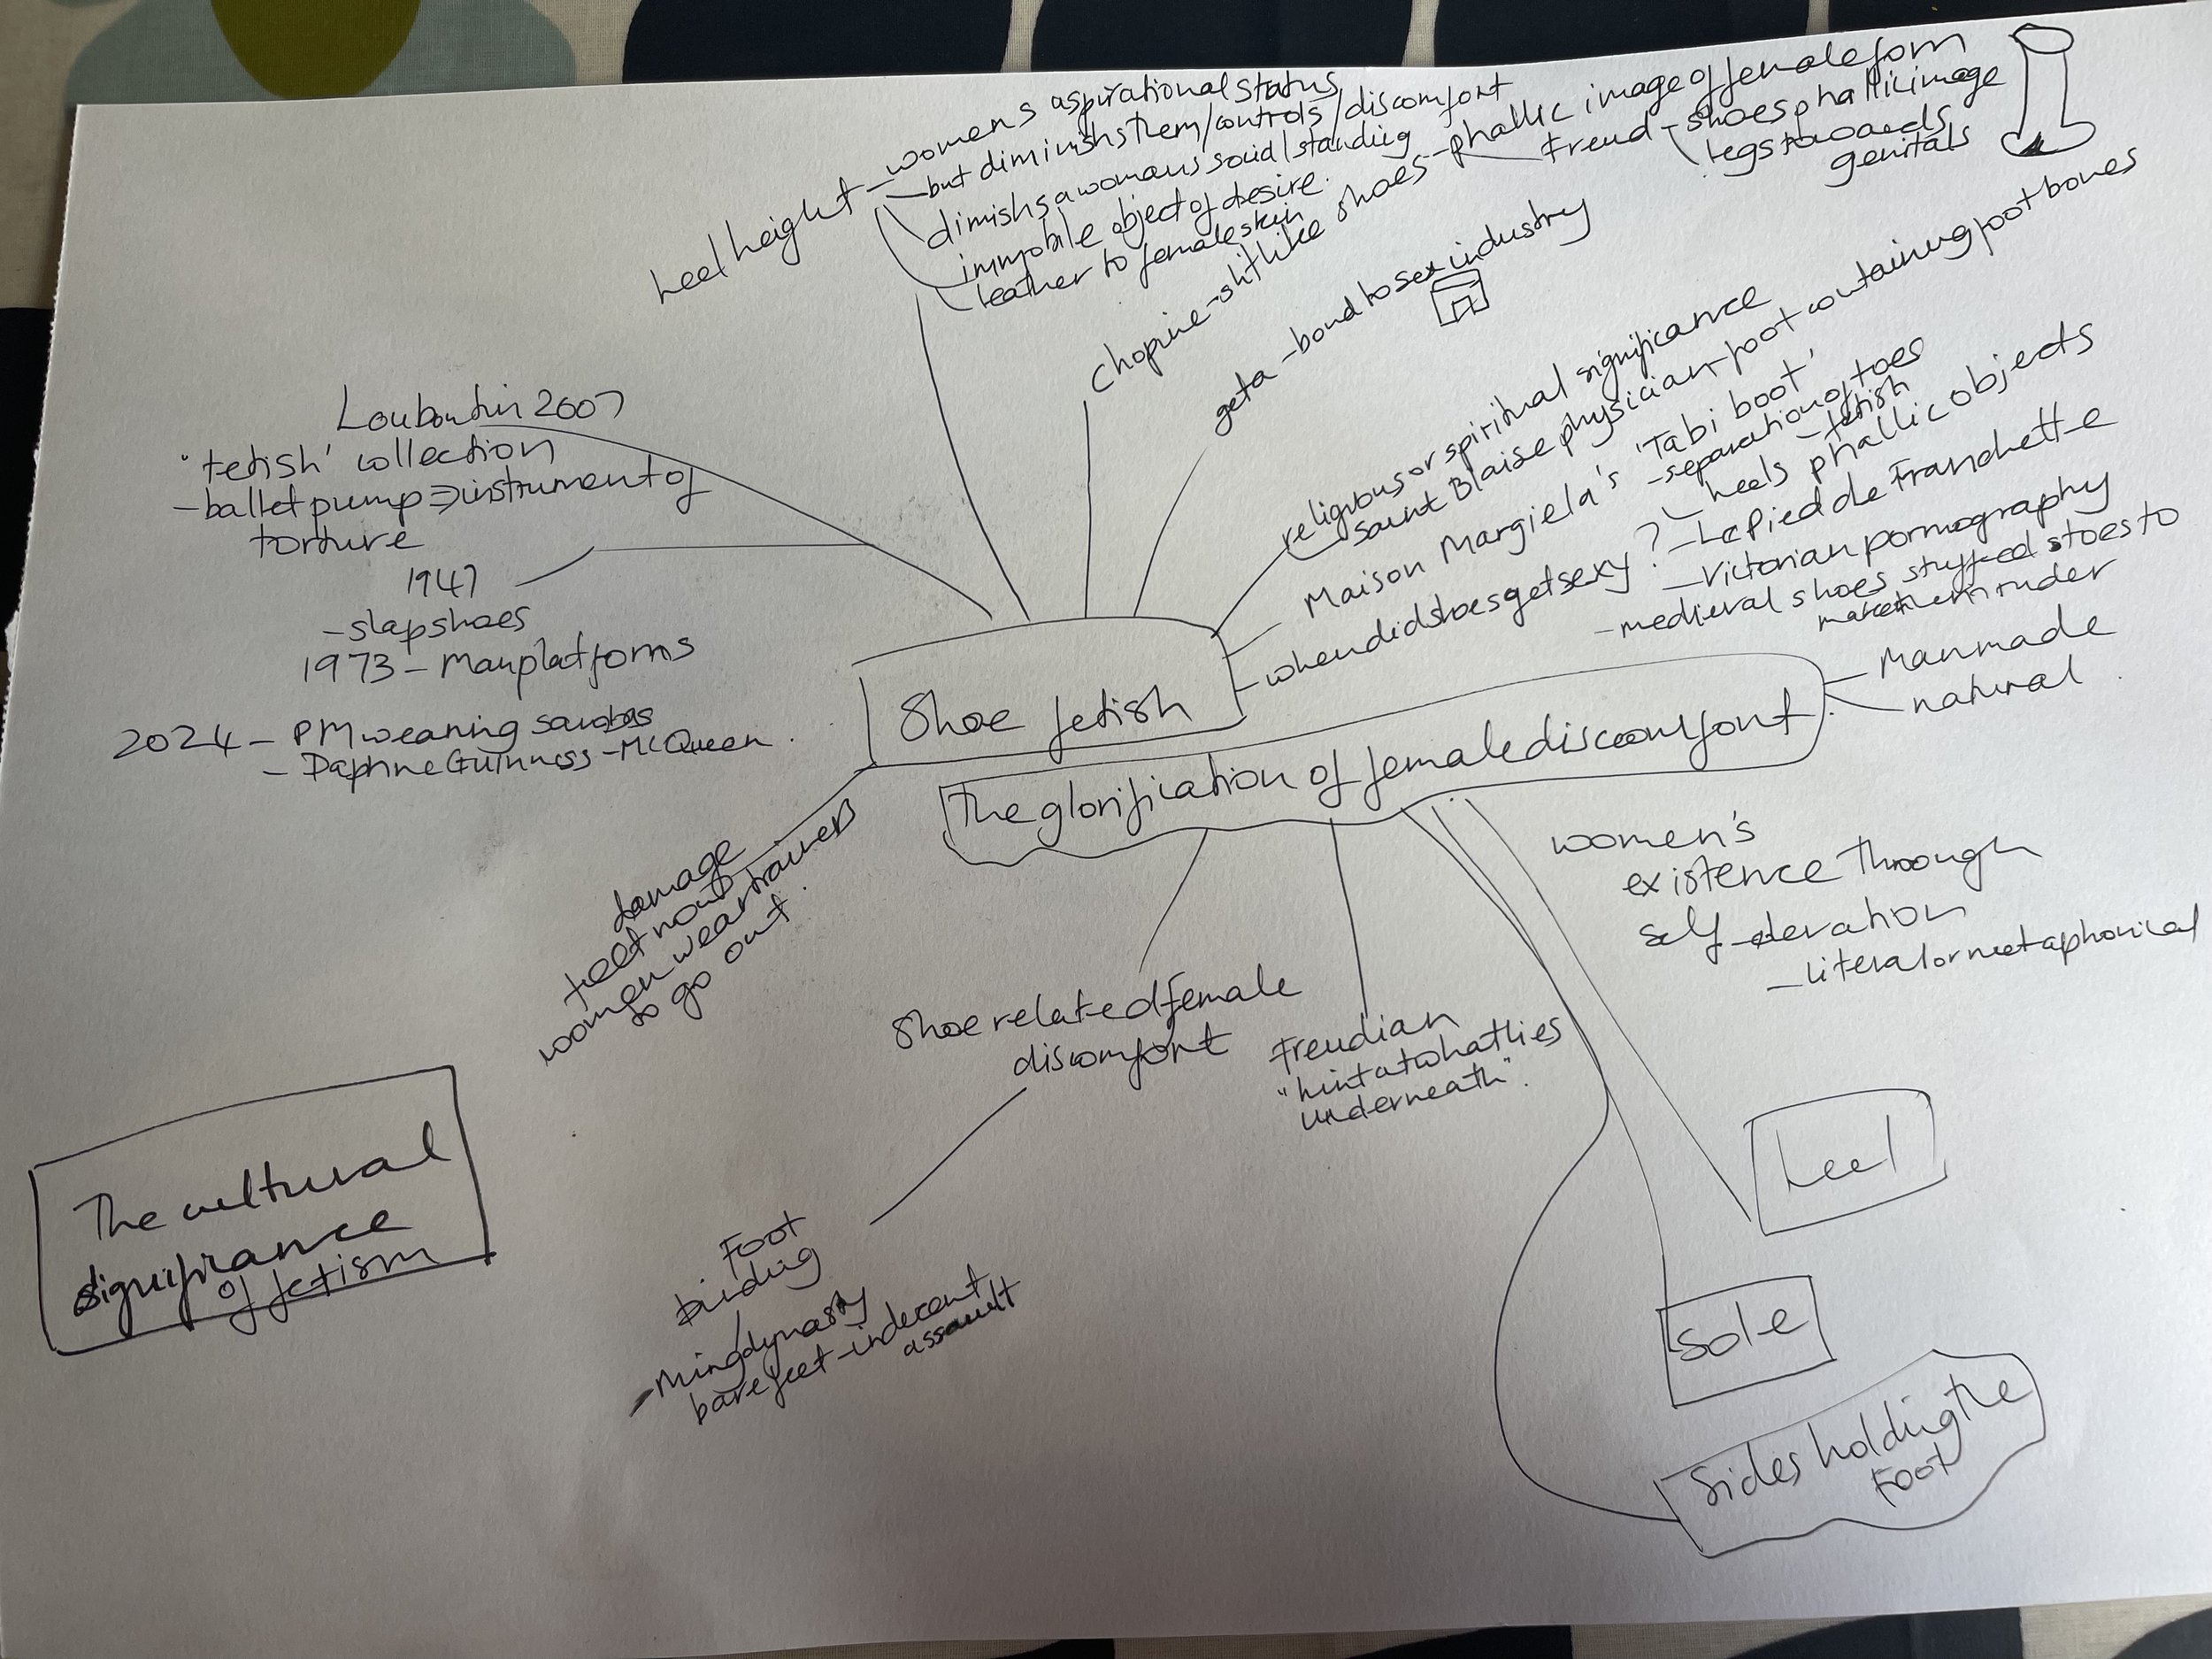 heel height - womens aspirational status
- but diminishs them/controls/discomfort
dimishs a womans social standing
immobile object of desire.
leather to female skin
chopine - slit like shoes - phallic image of female form
Freud - shoes phallic image
legs towards
genitals
geta - bond to sex industry
religious or spiritual significance
Saint Blaise physician - foot containing foot bones
Maison Margiela's 'Tabi boot'
- separation of toes
- fetish
when did shoes get sexy?
heels phallic objects
- Le pied de Franchette
- Victorian pornography
- medieval shoes stuffed stoes to
make them ruder
Louboutin 2007
'fetish' collection
- ballet pump => instrument of
torture
1947
- slap shoes
1973 - Man platforms
2024 - PM wearing sambas
- Daphne Guinness - McQueen.
Shoe fetish
The glorification of female discomfort
Manmade
natural
women's
existence through
self
- literal or metaphorical
damage
feet now
women wear trainers
to go out.
Shoe related female
discomfort
Freudian
"hint at what lies
underneath".
Foot
binding
- Ming dynasty
bare feet - indecent
assault
The cultural
signifiance
of fetism
heel
Sole
Sides holding the
Foot